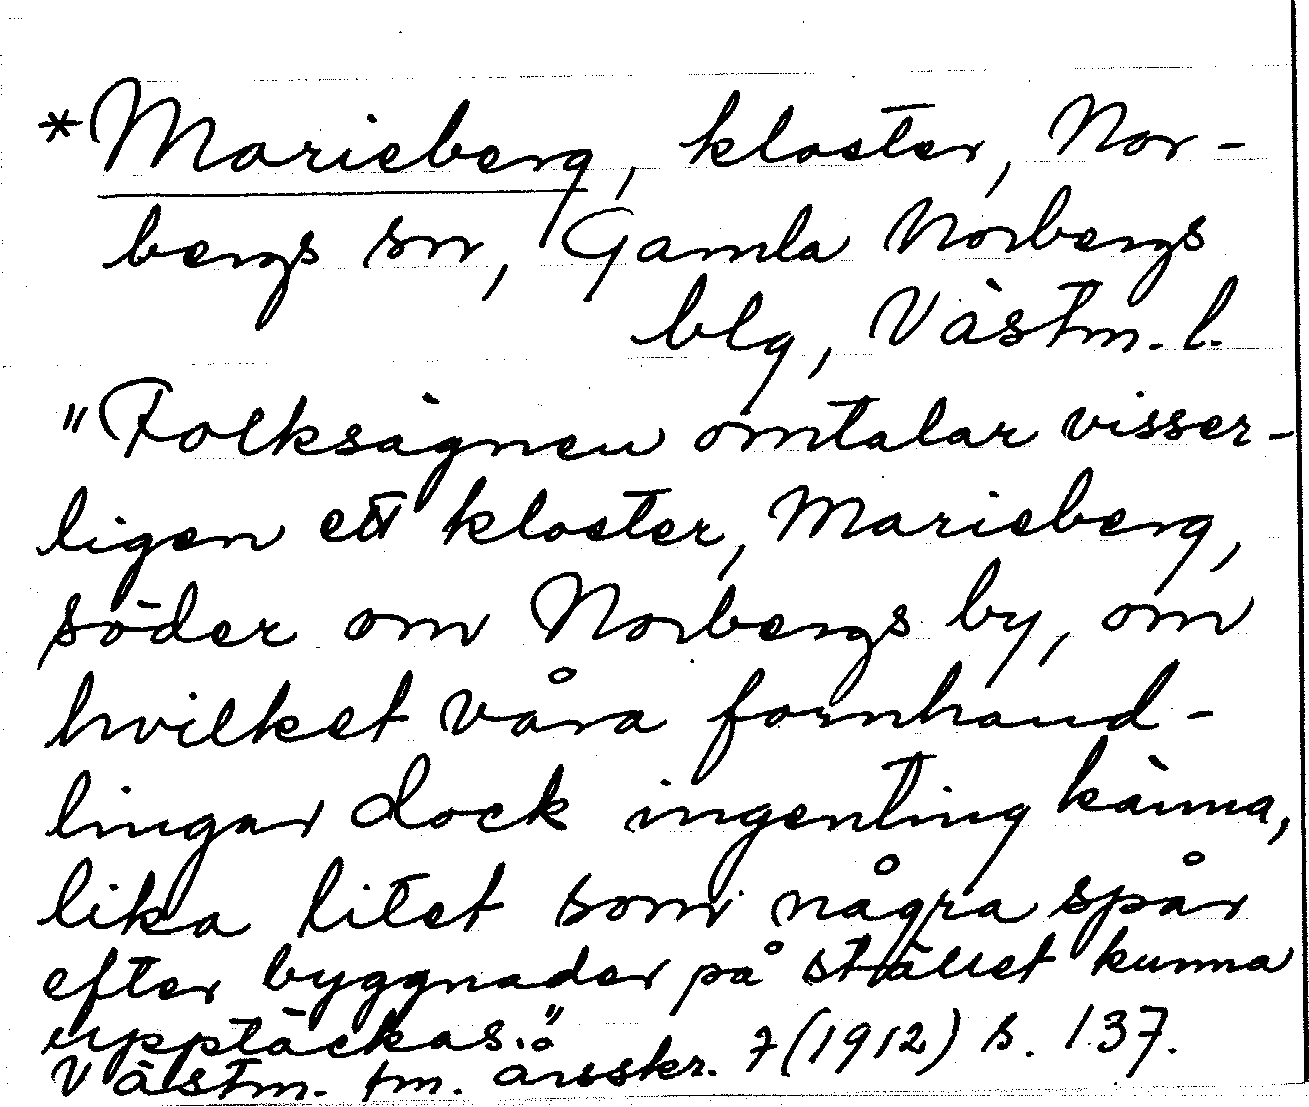 *Marieberg, kloster, Nor-
bergs sn, Gamla Norbergs
blg, Västm. l.
"Folksägnen omtalar visser-
ligen ett kloster, Marieberg,
söder om Norbergs by, om
hvilket våra fornhand-
lingar dock ingenting känna,
lika litet som några spår
efter byggnader på stället kunna
upptäckas."
Västm. fm. årsskr. 7 (1912) s. 137.